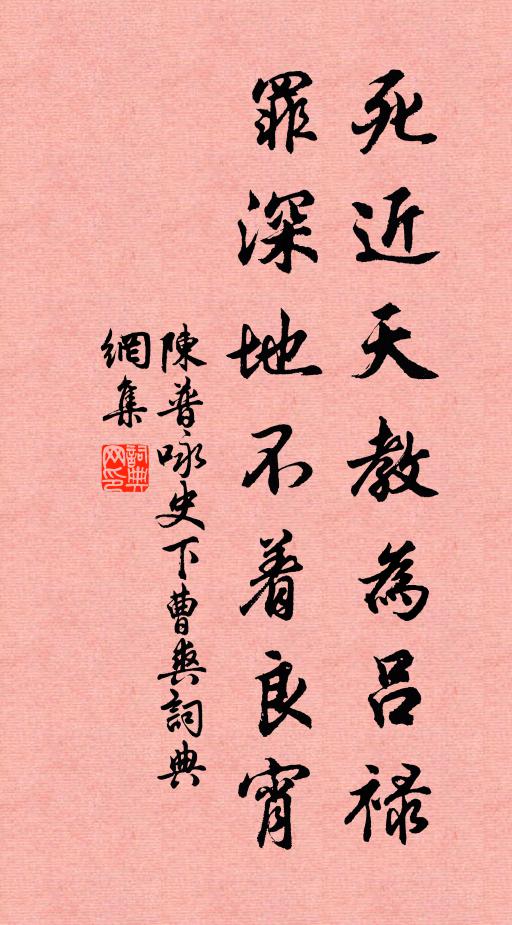 死近天教為呂祿
罪深地不着良宵
陳普咏史下曹爽詞典
網集
詞典
网印